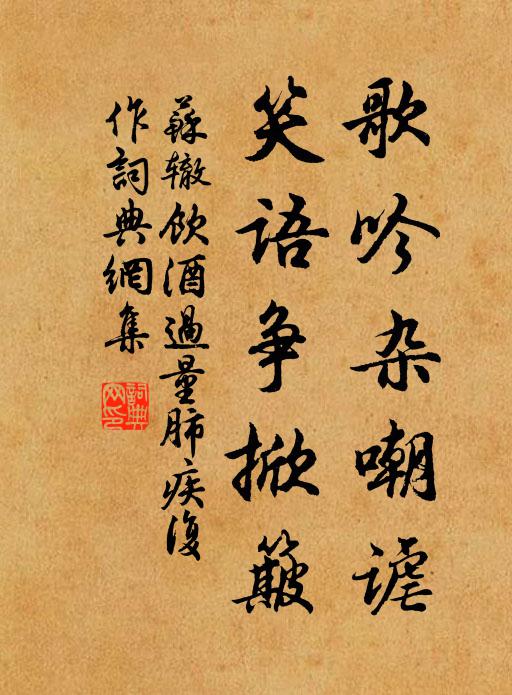 歌吟杂嘲谑
笑语争掀簸
苏辙饮酒過量肺疾復
作詞典網集
詞典
网印